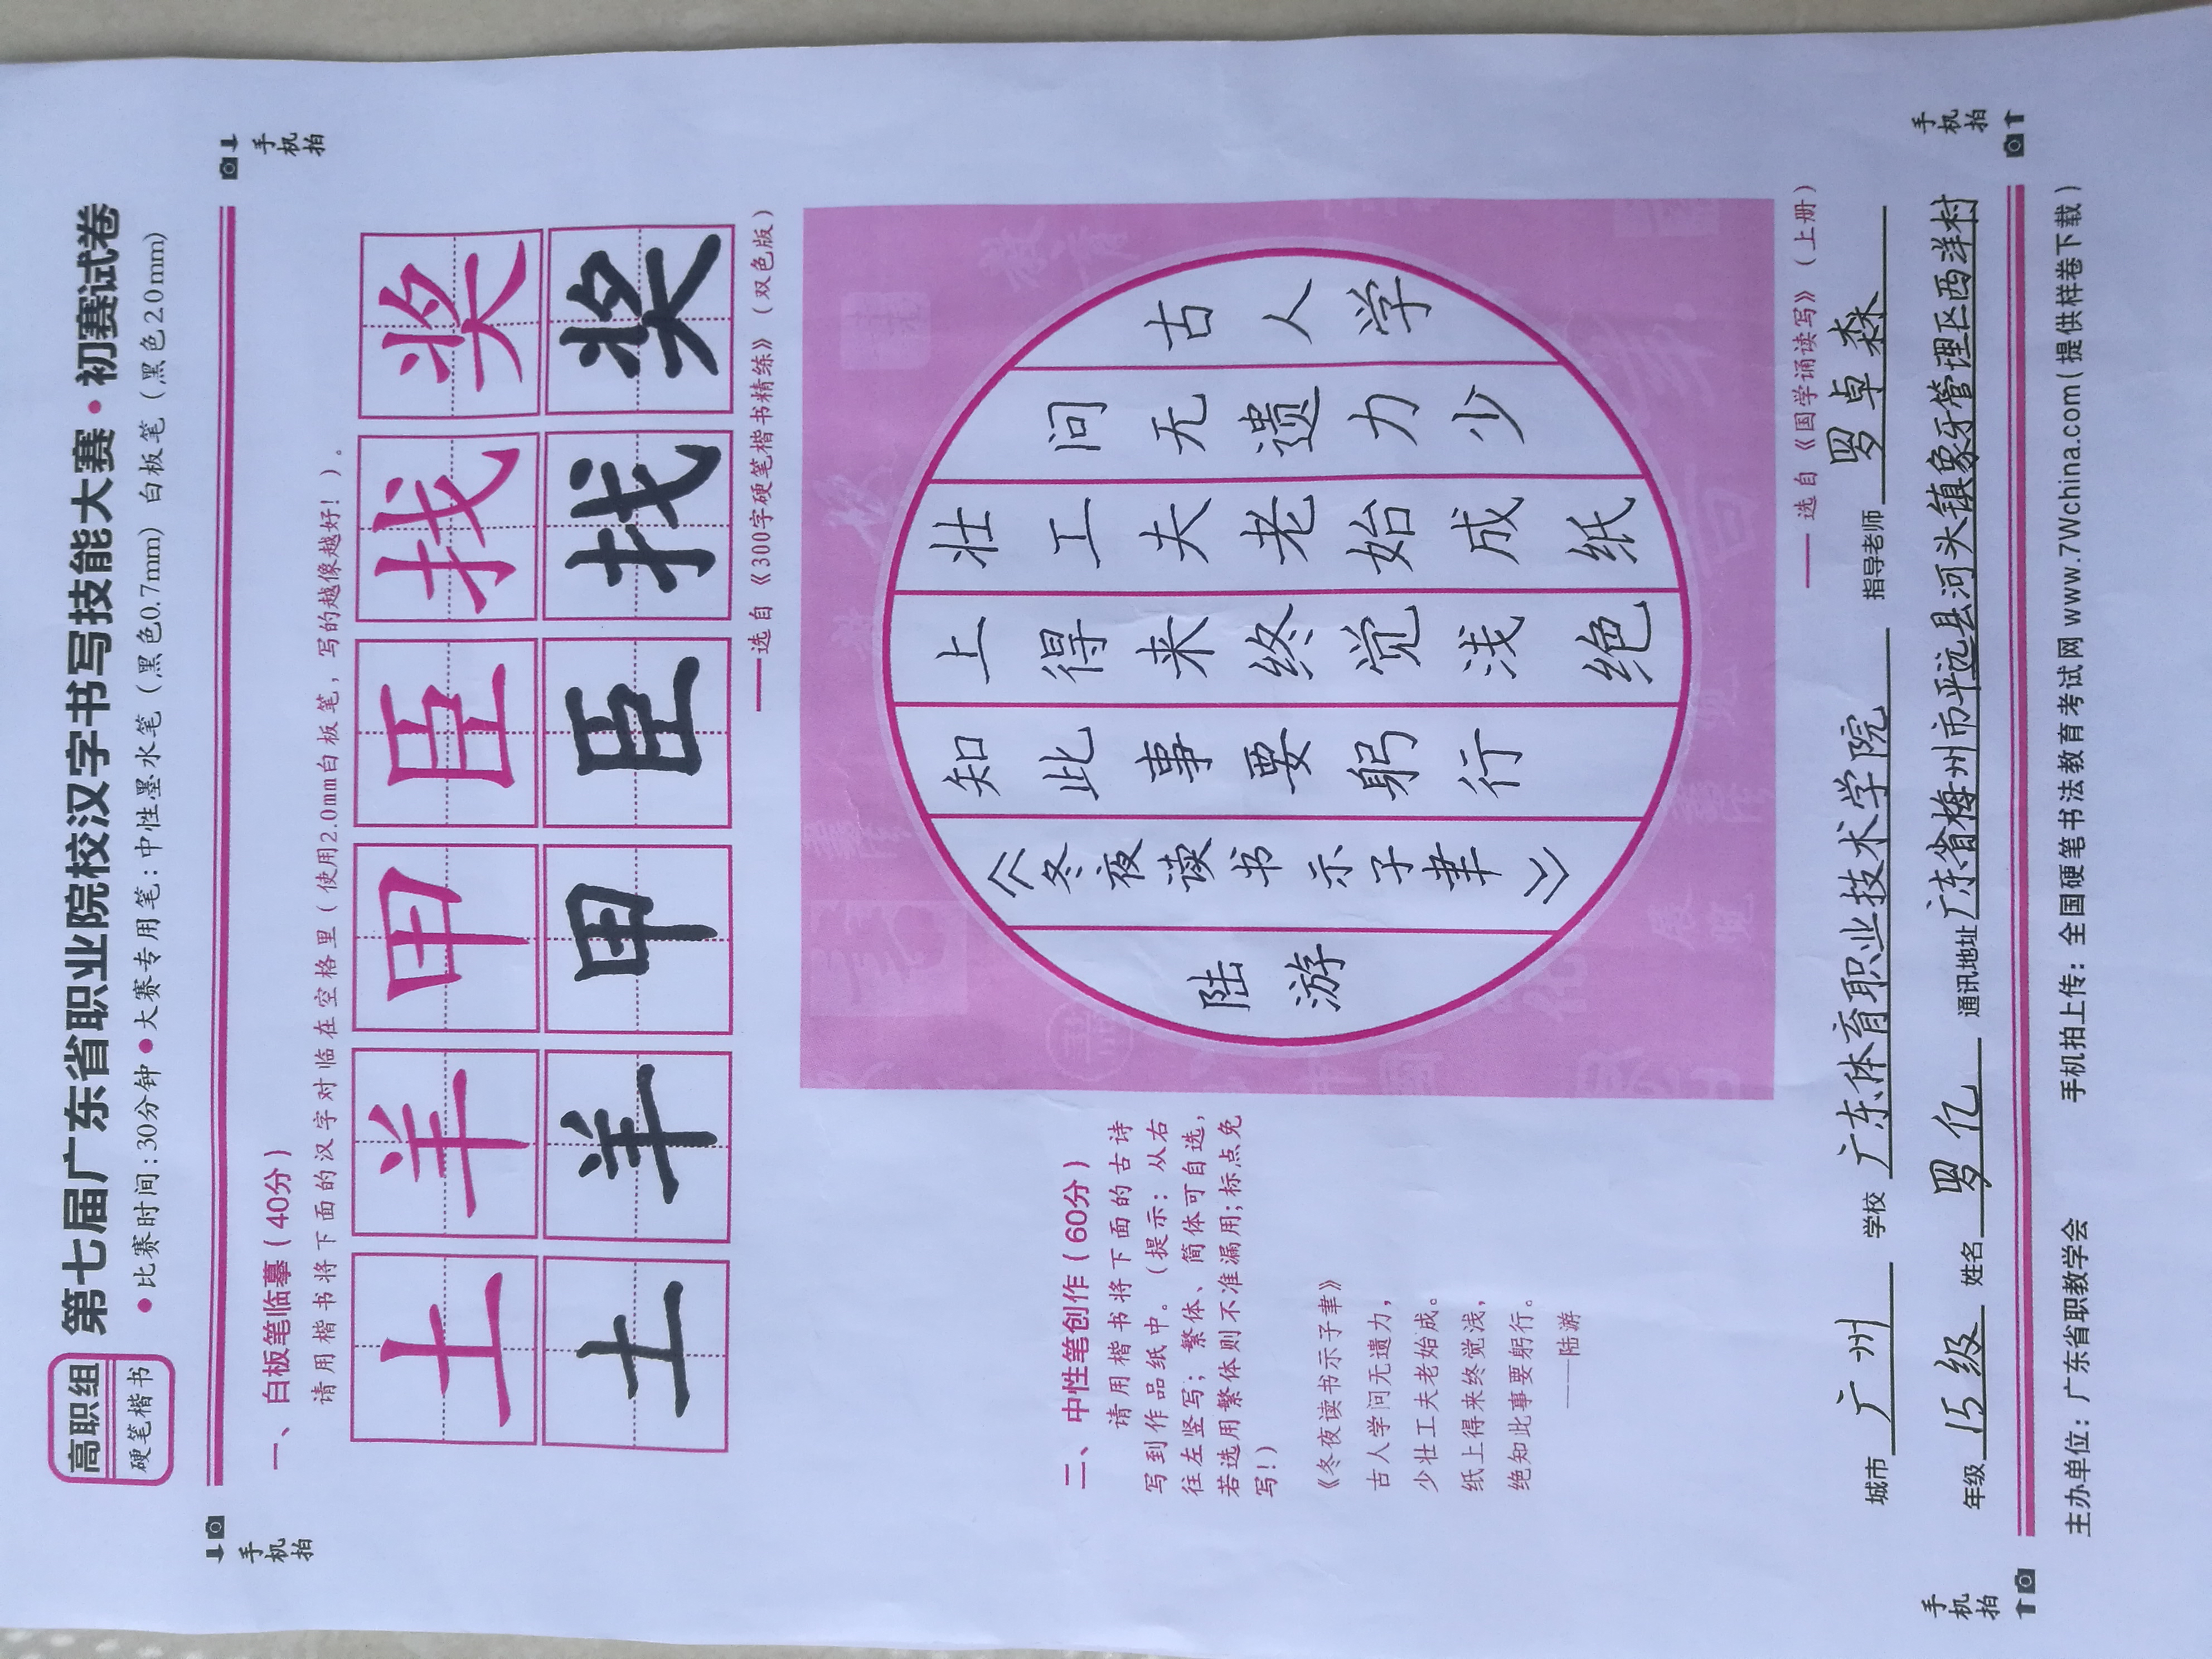 高职组
硬笔楷书
第七届广东省职业院校汉字书写技能大赛·初赛试卷
●比赛时间:30分钟●大赛专用笔:中性墨水笔(黑色0.7mm) 白板笔(黑色20mm)
手机拍
手机拍
一、白板笔临摹(40分)
请用楷书将下面的汉字对临在空格里(使用2.0mm白板笔,写的越像越好!)。
土羊甲臣找奖
土羊甲臣找奖
——选自《300字硬笔楷书精练》(双色版)
二、中性笔创作(60分)
请用楷书将下面的古诗
写到作品纸中。(提示:从右
往左竖写;繁体、简体可自选,
若选用繁体则不准漏用;标点免
写!)
《冬夜读书示子聿》
古人学问无遗力,
少壮工夫老始成。
纸上得来终觉浅,
绝知此事要躬行。
——陆游
古人学
问无遗力少
壮工夫老始成纸
上得来终觉浅绝
知此事要躬行
《冬夜读书示子聿》
陆游
——选自《国学诵读写》(上册)
城市 广州 学校 广东体育职业技术学院 指导老师 罗卓森
年级 15级 姓名 罗亿 通讯地址 广东省梅州市平远县河头镇象牙管理区西洋村
手机拍
手机拍
主办单位:广东省职教学会 手机拍上传:全国硬笔书法教育考试网 www.7Wchina.com(提供样卷下载)